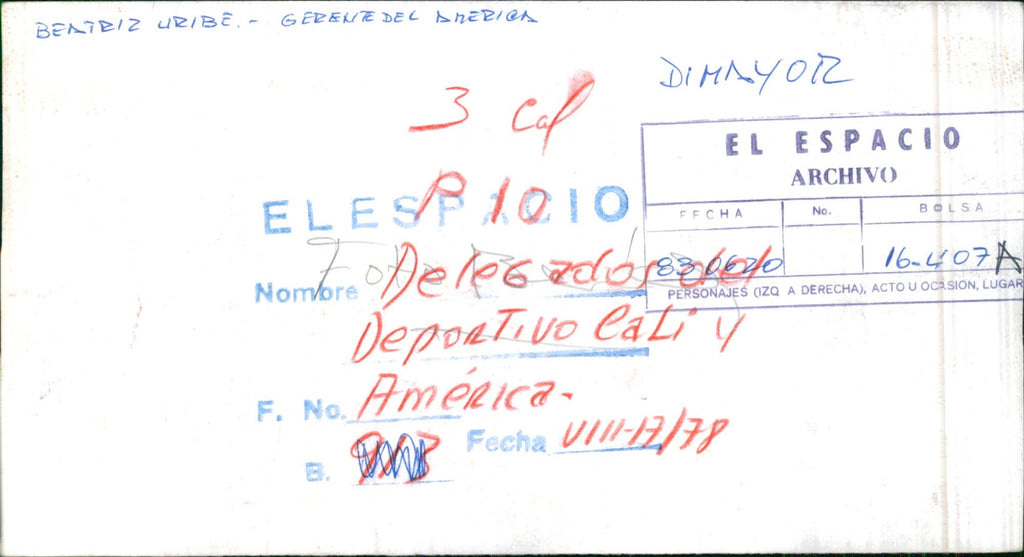 BEATRIZ URIBE.- GERENTE DEL AMERICA
DIMAYOR
3 Col
P 10
EL ESPACIO
ARCHIVO
FECHA No. BOLSA
830620 16-407A
PERSONAJES (IZQ A DERECHA), ACTO U OCASION, LUGAR
EL ESPACIO
Nombre Delegados del
Deportivo Cali y
F. No. América-
Fecha VIII-17/78
B.